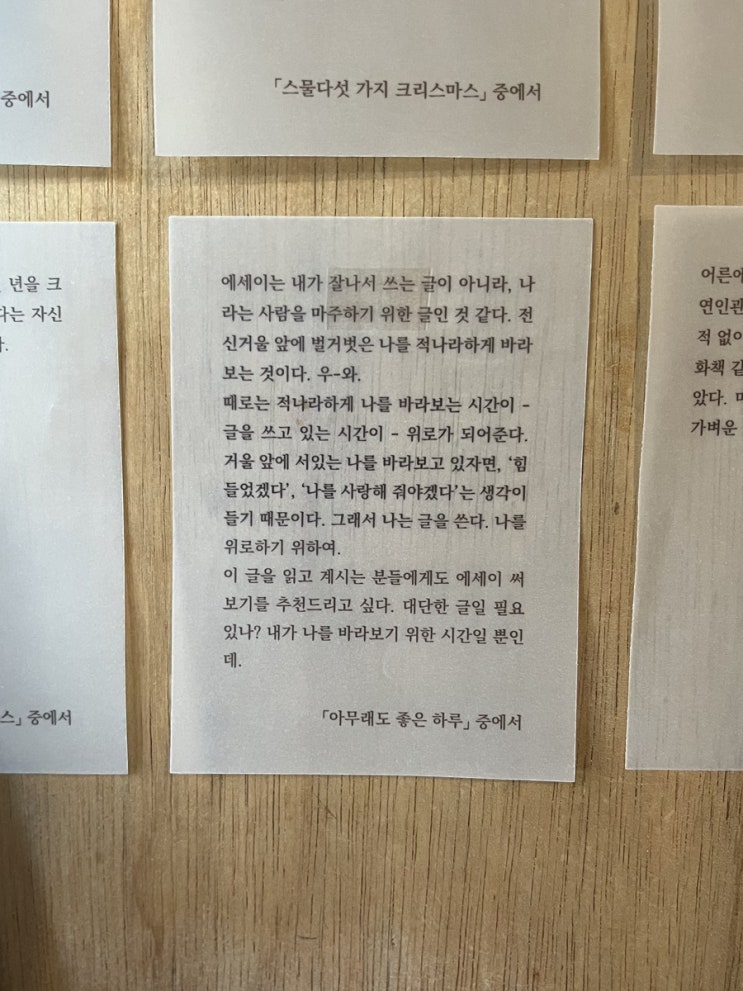 중에서
「스물다섯 가지 크리스마스」 중에서
년을 크
다는 자신
에세이는 내가 잘나서 쓰는 글이 아니라, 나
라는 사람을 마주하기 위한 글인 것 같다. 전
신거울 앞에 벌거벗은 나를 적나라하게 바라
보는 것이다. 우-와.
때로는 적나라하게 나를 바라보는 시간이 -
글을 쓰고 있는 시간이 - 위로가 되어준다.
거울 앞에 서있는 나를 바라보고 있자면, ‘힘
들었겠다’, ‘나를 사랑해 줘야겠다’는 생각이
들기 때문이다. 그래서 나는 글을 쓴다. 나를
위로하기 위하여.
이 글을 읽고 계시는 분들에게도 에세이 써
보기를 추천드리고 싶다. 대단한 글일 필요
있나? 내가 나를 바라보기 위한 시간일 뿐인
데.
「아무래도 좋은 하루」 중에서
스」 중에서
어른에
연인관
적 없이
화책 같
았다.
가벼운